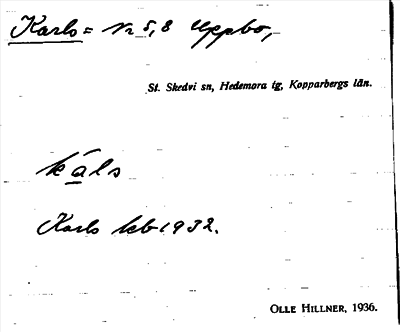 Karls = Nr 5, 8 Uppbo,
St. Skedvi sn, Hedemora tg, Kopparbergs län.
kals
Karls kb 1932.
OLLE HILLNER, 1936.